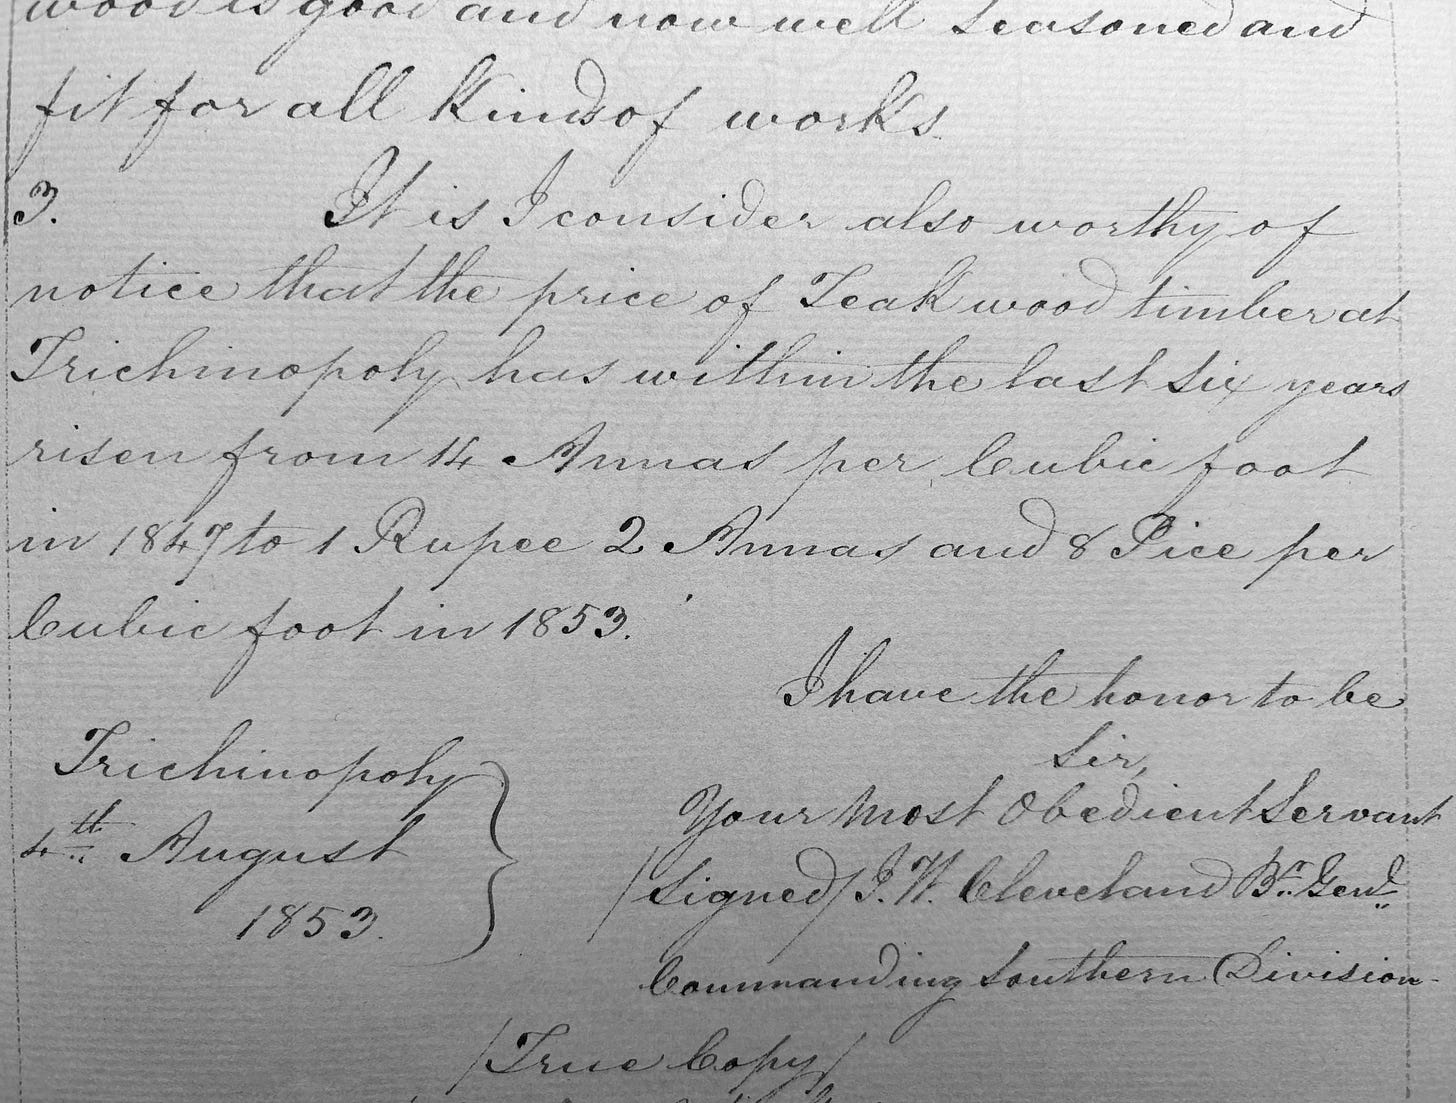 wood is good and now well seasoned and
fit for all kinds of works
3. It is I consider also worthy of
notice that the price of Teak wood timber at
Trichinopoly has within the last six years
risen from 14 Annas per Cubic foot
in 1847 to 1 Rupee 2 Annas and 8 Pice per
Cubic foot in 1853.
I have the honor to be
Sir,
Your Most Obedient Servant
/Signed/ J. W. Cleveland Br. Genl.
Commanding Southern Division
Trichinopoly
4th August
1853.
/True Copy/